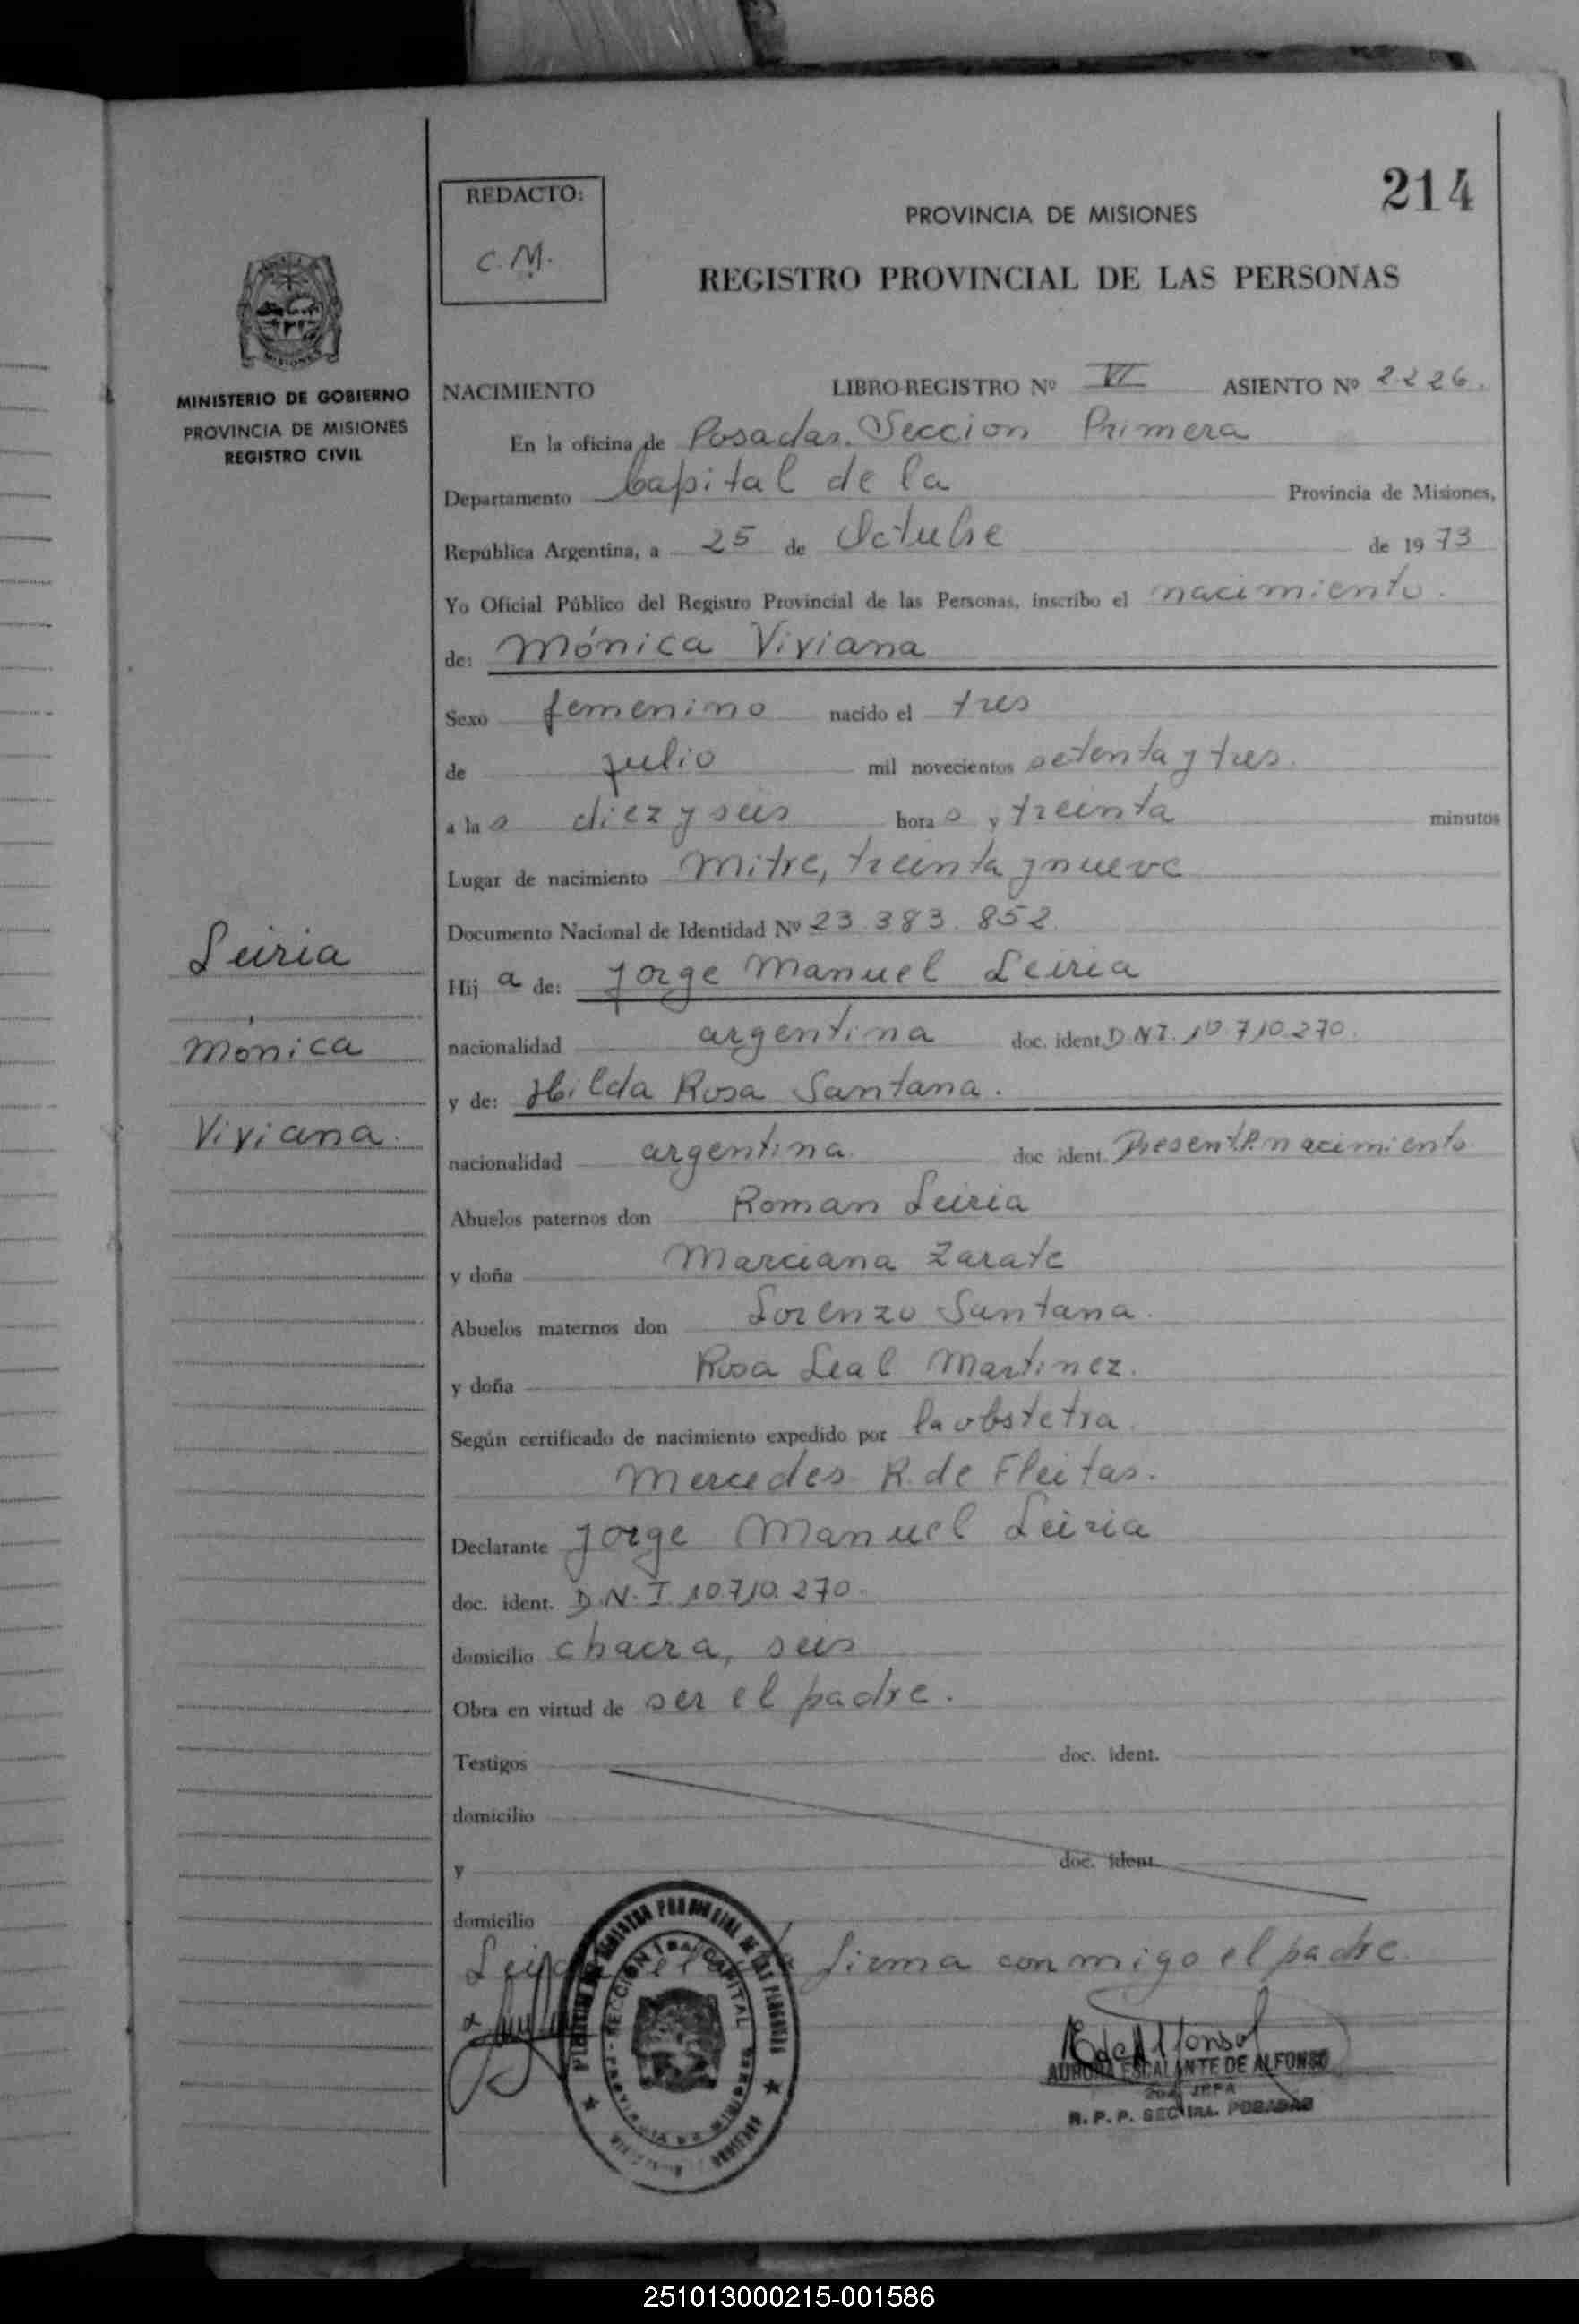 214
REDACTO:
C. M.
PROVINCIA DE MISIONES
REGISTRO PROVINCIAL DE LAS PERSONAS
MISIONES
MINISTERIO DE GOBIERNO
PROVINCIA DE MISIONES
REGISTRO CIVIL
NACIMIENTO LIBRO-REGISTRO Nº VI ASIENTO Nº 2226.
En la oficina de Posadas. Seccion Primera
Departamento Capital de la Provincia de Misiones,
República Argentina, a 25 de Octubre de 1973
Yo Oficial Público del Registro Provincial de las Personas, inscribo el nacimiento.
de: Mónica Viviana
Sexo femenino nacido el tres
de julio mil novecientos setenta y tres.
a la s diez y seis hora s y treinta minutos
Lugar de nacimiento Mitre, treinta y nueve
Documento Nacional de Identidad Nº 23.383.852
Leiria
Mónica
Viviana.
Hij a de: Jorge Manuel Leiria
nacionalidad argentina doc. ident. D.N.I. 10.710.270.
y de: Hilda Rosa Santana.
nacionalidad argentina doc ident. Present.P. nacimiento
Abuelos paternos don Roman Leiria
y doña Marciana Zarate
Abuelos maternos don Lorenzo Santana.
y doña Rosa Leal Martinez.
Según certificado de nacimiento expedido por la obstetra
Mercedes R. de Fleitas.
Declarante Jorge Manuel Leiria
doc. ident. D.N.I. 10.710.270.
domicilio chacra, seis
Obra en virtud de ser el padre.
Testigos doc. ident.
domicilio
y doc. ident.
domicilio
firma conmigo el padre.
AURORA ESCALANTE DE ALFONSO
2da. JEFA
R. P. P. SEC. 1RA. POSADAS
251013000215-001586